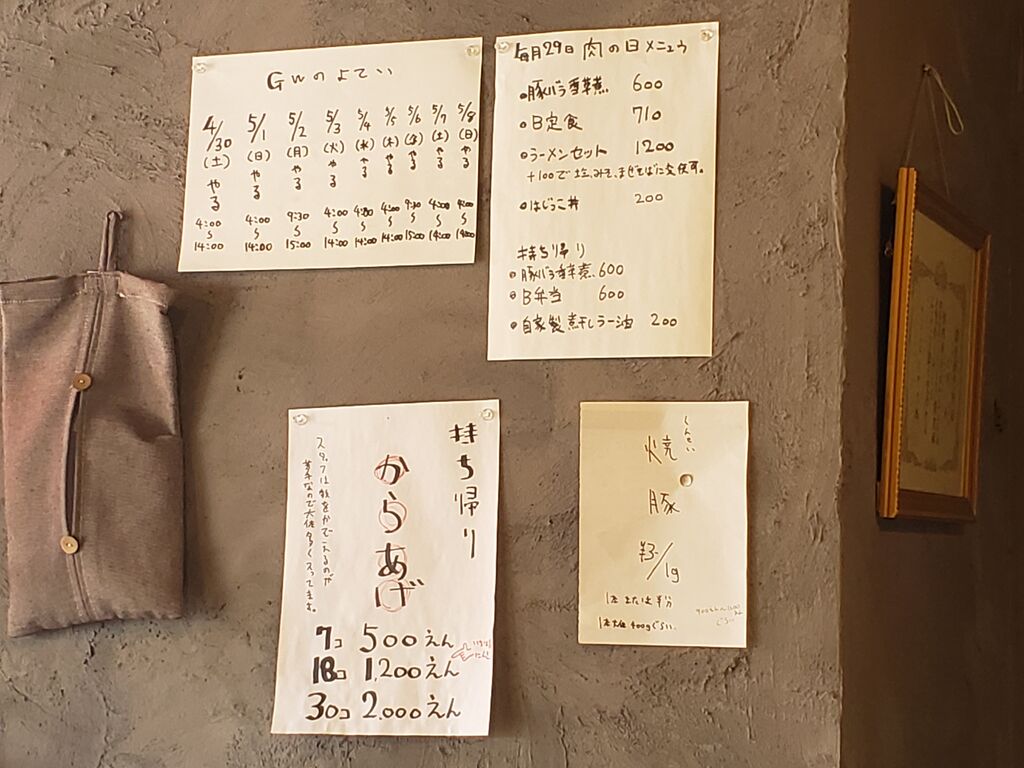 GWのよてい
4/30 5/1 5/2 5/3 5/4 5/5 5/6 5/7 5/8
(土) (日) (月) (火) (水) (木) (金) (土) (日)
やる やる やる やる やる やる やる やる やる
4:00 4:00 9:30 4:00 4:00 4:00 9:30 4:00 4:00
〜 〜 〜 〜 〜 〜 〜 〜 〜
14:00 14:00 15:00 14:00 14:00 14:00 15:00 14:00 14:00
毎月29日 肉の日メニュウ
●豚バラ香草煮 600
●B定食 710
●ラーメンセット 1200
+100で塩、みそ、まぜそばに変更可。
●はじっこ丼 200
持ち帰り
●豚バラ香草煮 600
●B弁当 600
●自家製煮干しラー油 200
持ち帰り
からあげ
スタッフは数をかぞえるのが
苦手なので大体多く入ってます。
7コ 500えん
18コ 1,200えん
30コ 2,000えん
焼豚
¥3/1g
1本または半分
1本大体400gぐらい